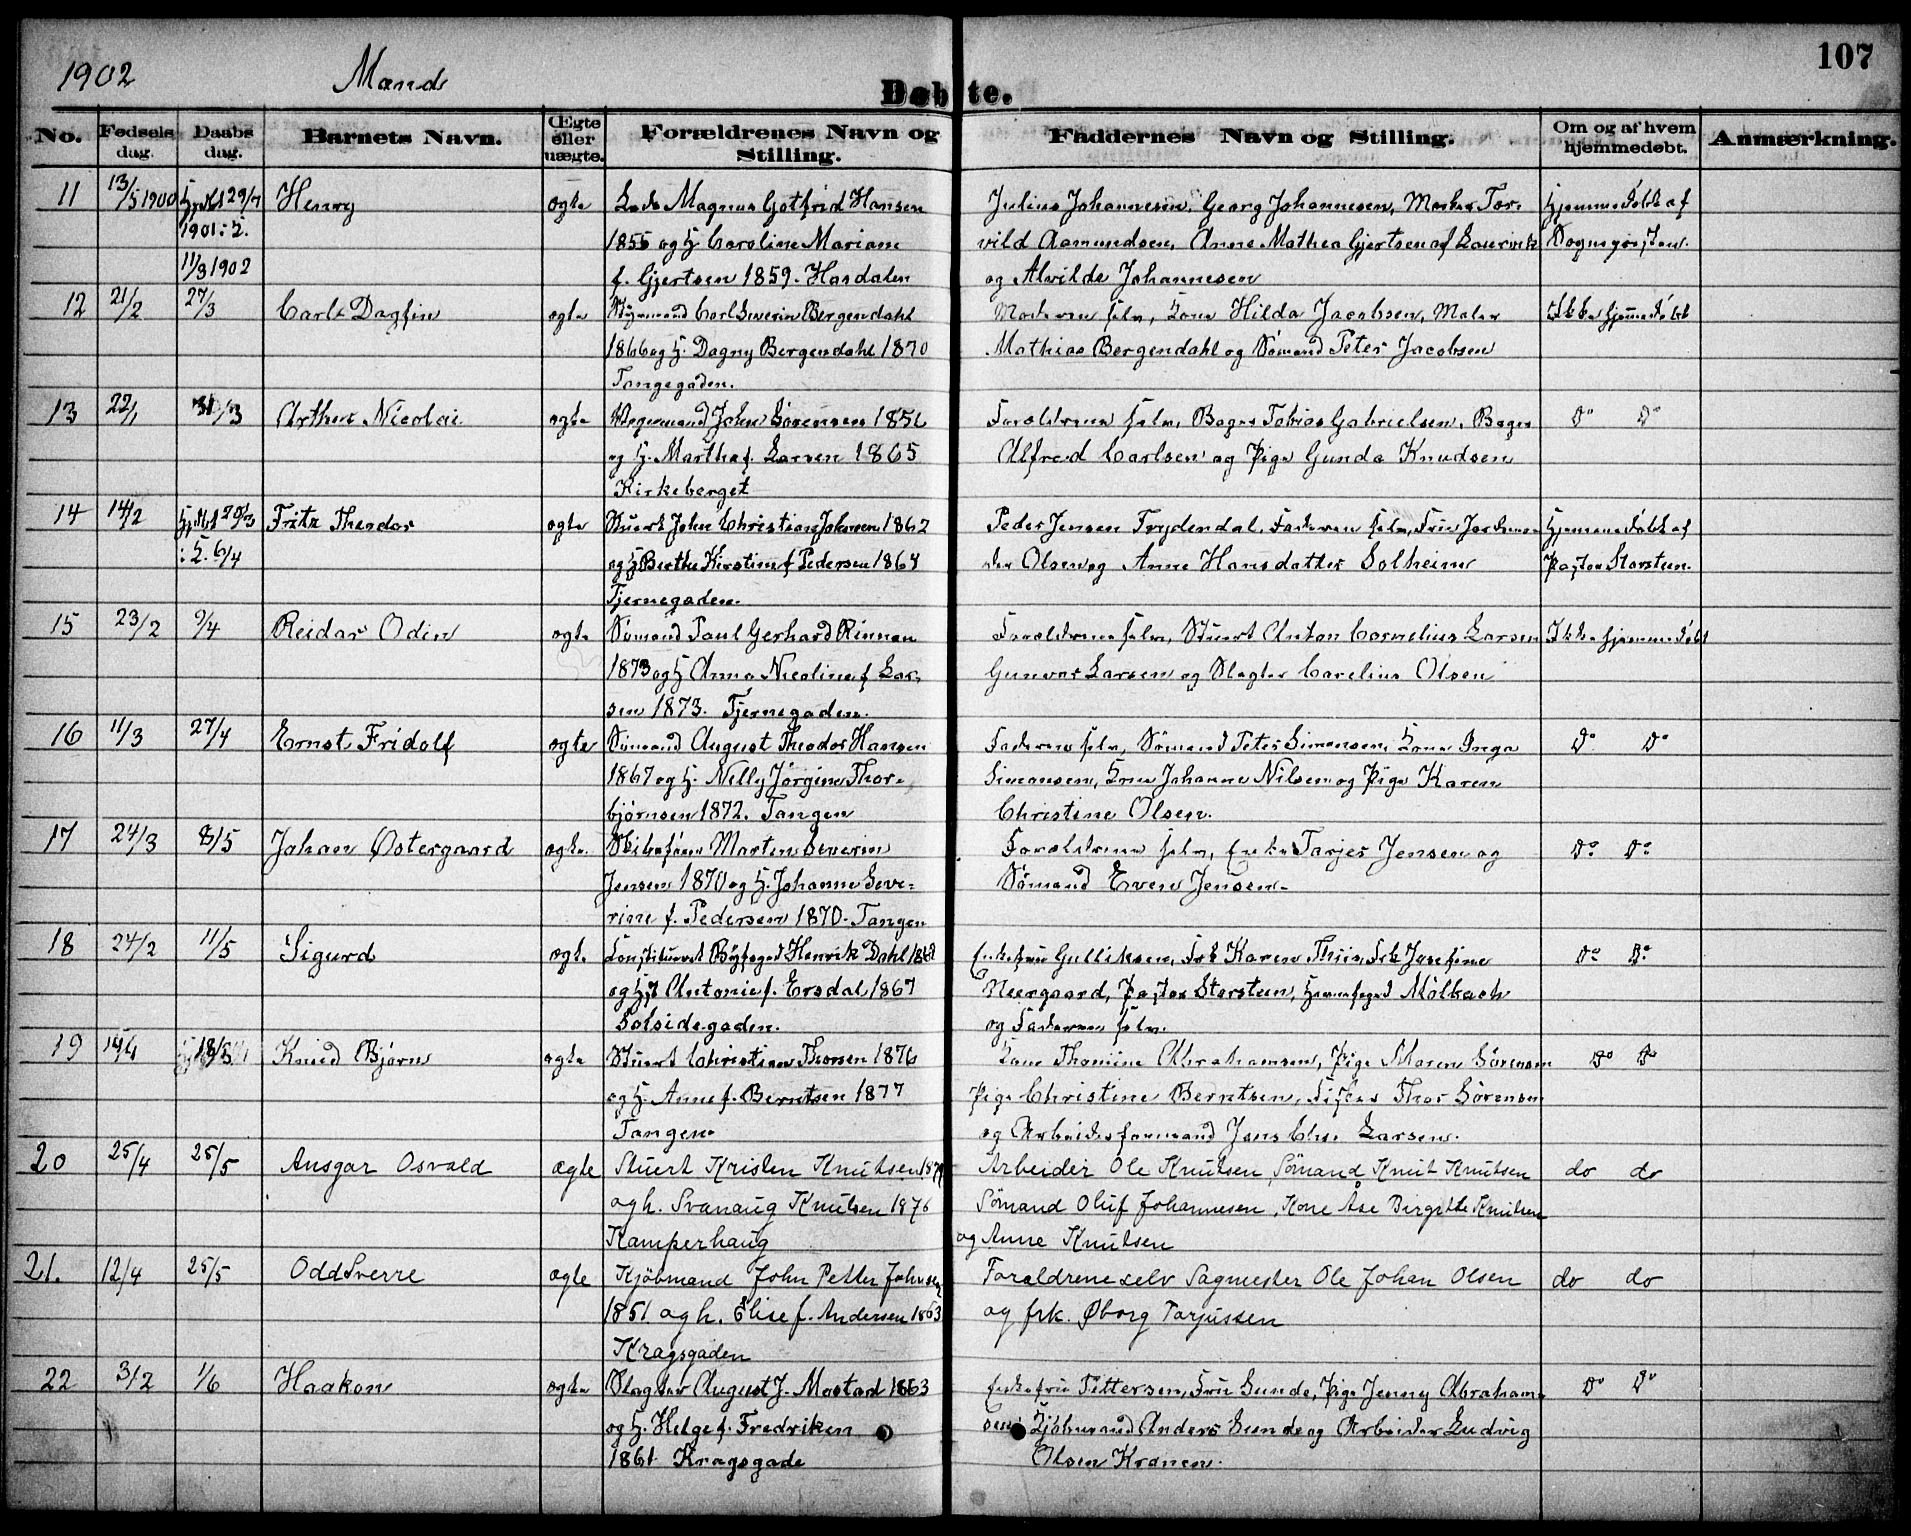 107
1902 Mænd
Døbte.
No. Fødsels dag. Daabs dag. Barnets Navn. Œgte eller uægte. Forældrenes Navn og Stilling. Faddernes Navn og Stilling. Om og af hvem hjemmedøbt. Anmærkning.
11 13/5 1900 29/7 Henry ægte Magnus Gotfrid Hansen Julius Johannesen, Georg Johannesen, Tor- Hjemmedøbt af
1901 i K. 1855 og H. Caroline Mariane vild Aamundsen, Anne Mathea Gjertsen af Sognepræsten.
11/3 1902 f. Gjertsen 1859. Hasdalen og Alvilde Johannesen
12 21/2 27/3 Carl Dagfin ægte Styrmand Carl Severin Bergendahl Moderen selv, Kone Hilda Jacobsen, Maler Ikke hjemmedøbt
1866 og H. Dagny Bergendahl 1870 Mathias Bergendahl og Sømand Peter Jacobsen
Tangegaden.
13 22/1 31/3 Arthur Nicolai ægte John Sørensen 1851 Forældrene selv, Bager Tobias Gabrielsen, Bager Do Do
og H. Martha f. Larsen 1865 Alfred Carlsen og Pige Gunda Knudsen
Kirkeberget
14 14/2 Fritz Theodor ægte Stuert John Christian Johnsen 1862 Peder Jensen Frydendal, Faderen selv, Hjemmedøbt af
i K. 6/4 og H Berthe Kirstine f Pedersen 1864 Olsen og Anne Hansdatter Solheim Pastor Storsteen.
Tjernegaden.
15 23/2 9/4 Reidar Odin ægte Sømand Paul Gerhard Rinnan Forældrene selv, Stuert Anton Cornelius Larsen Ikke hjemmedøbt
1873 og H Anna Nicoline f Lar- Gunvor Larsen og Slagter Carelius Olsen
sen 1873. Tjernegaden.
16 11/3 27/4 Ernst Fridolf ægte Sømand August Theodor Hansen Faderen selv, Sømand Peter Simonsen, Kone Inga Do Do
1867 og H. Nelly Jørgine Thor- Simonsen, Kone Johanne Nilsen og Pige Karen
bjørnsen 1872. Tangen Christine Olsen.
17 24/3 8/5 Johan Østergaard ægte Skibsfører Martin Severin Forældrene selv, Enke Tarjer Jensen og Do Do
Jensen 1870 og H. Johanne Seve- Sømand Even Jensen.
rine f. Pedersen 1870. Tangen
18 24/2 11/5 Sigurd ægte Konstitueret Byfoged Henrik Dahl Enkefru Gulliksen, Frk Karen Thiis, Frk Josefine Do Do
og H Antonie f. Ersdal 1867 Neergaard, Pastor Storsteen, Herredsfoged Mölbach
Solsidegaden. og Faderen selv.
19 19/4 18/5 Knud Bjørn ægte Stuert Christian Thorsen 1876 Kone Thomine Abrahamsen, Pige Maren Sørensen Do Do
og H. Anne f. Berntsen 1877 Pige Christine Berntsen, Fisker Thor Sørensen
Tangen. og Arbeidsformand Jens Chr. Larsen.
20 25/4 25/5 Ansgar Osvald ægte Stuert Kristen Knutsen Arbeider Ole Knutsen, Sømand Knut Knutsen do do
og h. Svanaug Knutsen 1876 Sømand Oluf Johannesen, Kone Åse Birgitte Knutsen
Kamperhaug og Anne Knutsen
21. 12/4 25/5 Odd Sverre ægte Kjøbmand John Petter Johnsen Forældrene selv Sagmester Ole Johan Olsen do do
1851 og h. Elise f. Andersen 1863 og frk. Øborg Tarjussen
Kragsgaden
22 3/2 1/6 Haakon ægte Slagter August J. Mostad 1863 Enkefru Pettersen, Fru Sunde, Pige Jenny Abraham- Do Do
og H. Helge f. Fredriksen sen Kjøbmand Anders Sunde og Arbeider Ludvig
1861 Kragsgade Olsen Kranen.